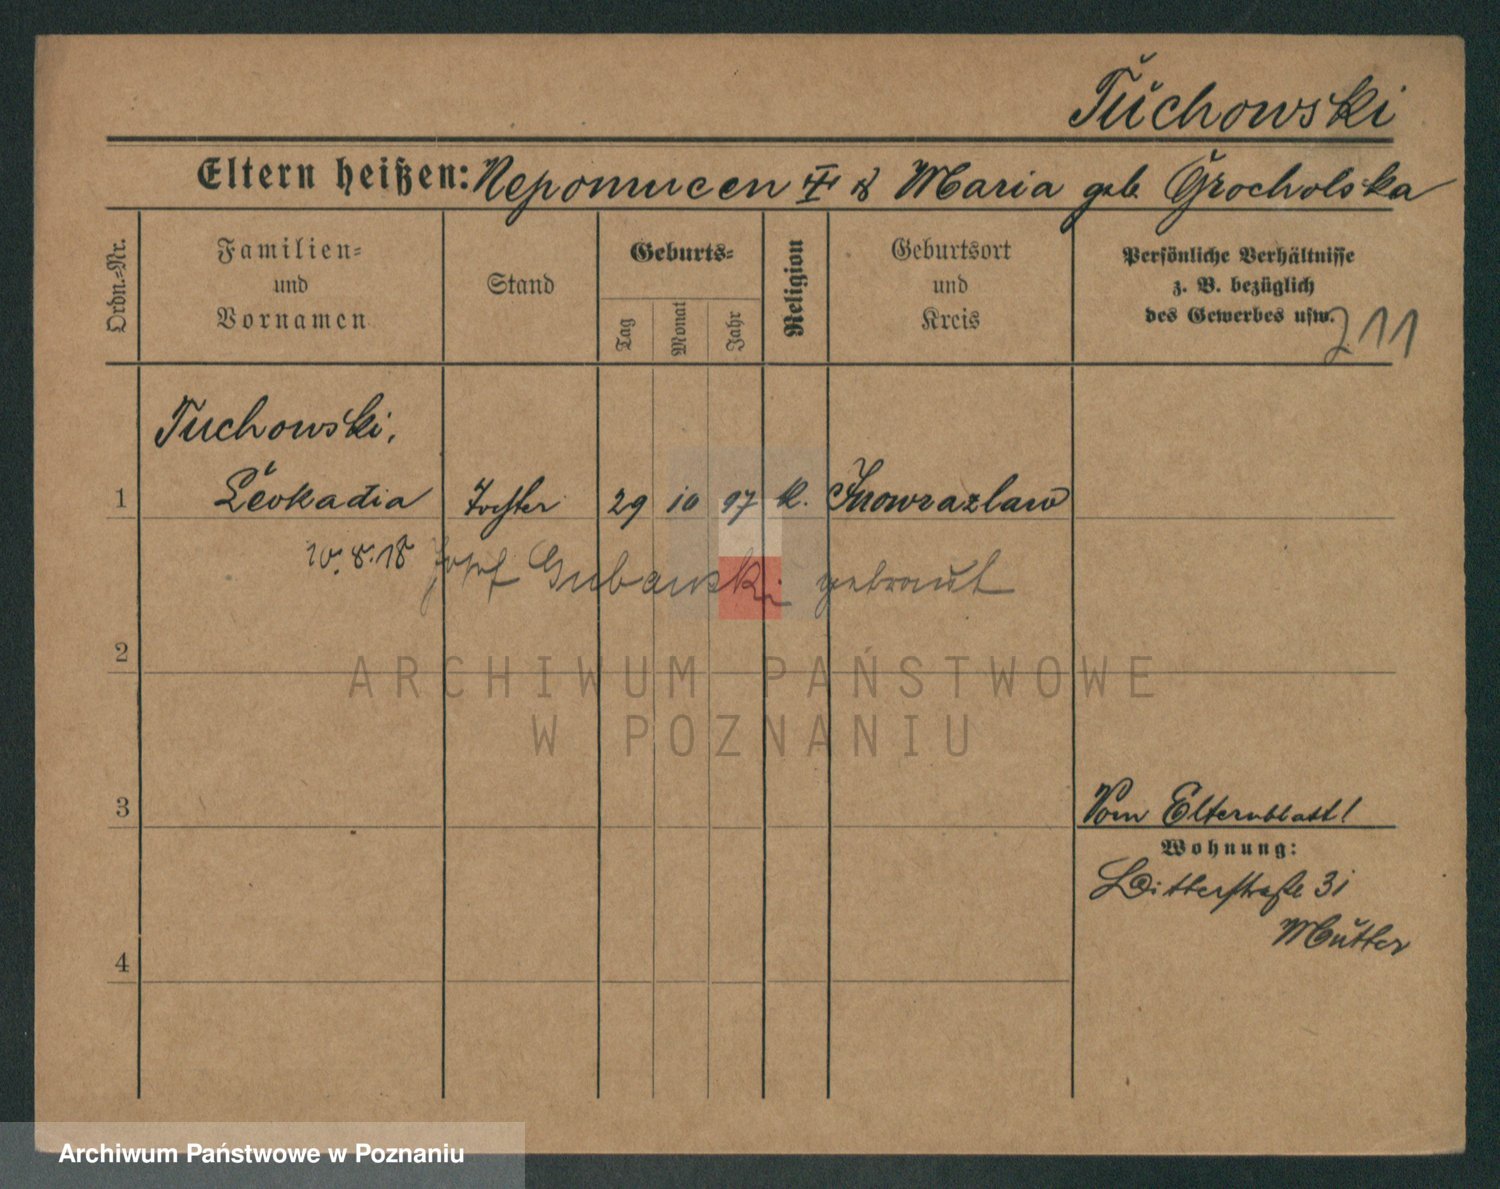 Tuchowski
Eltern heißen: Nepomucen ☩ & Maria geb. Grocholska
Ordn.-Nr.
Familien-
und
Vornamen
Stand
Geburts-
Tag
Monat
Jahr
Religion
Geburtsort
und
Kreis
Persönliche Verhältnisse
z. B. bezüglich
des Gewerbes usw.
J 11
Tuchowski,
1 Leokadia Tochter 29 10 97 k. Inowrazlaw
10.8.18 Josef Gubanski getraut
2
ARCHIWUM PAŃSTWOWE
W POZNANIU
3
Vom Elternblatt!
Wohnung:
Ritterstraße 31
Mutter
4
Archiwum Państwowe w Poznaniu